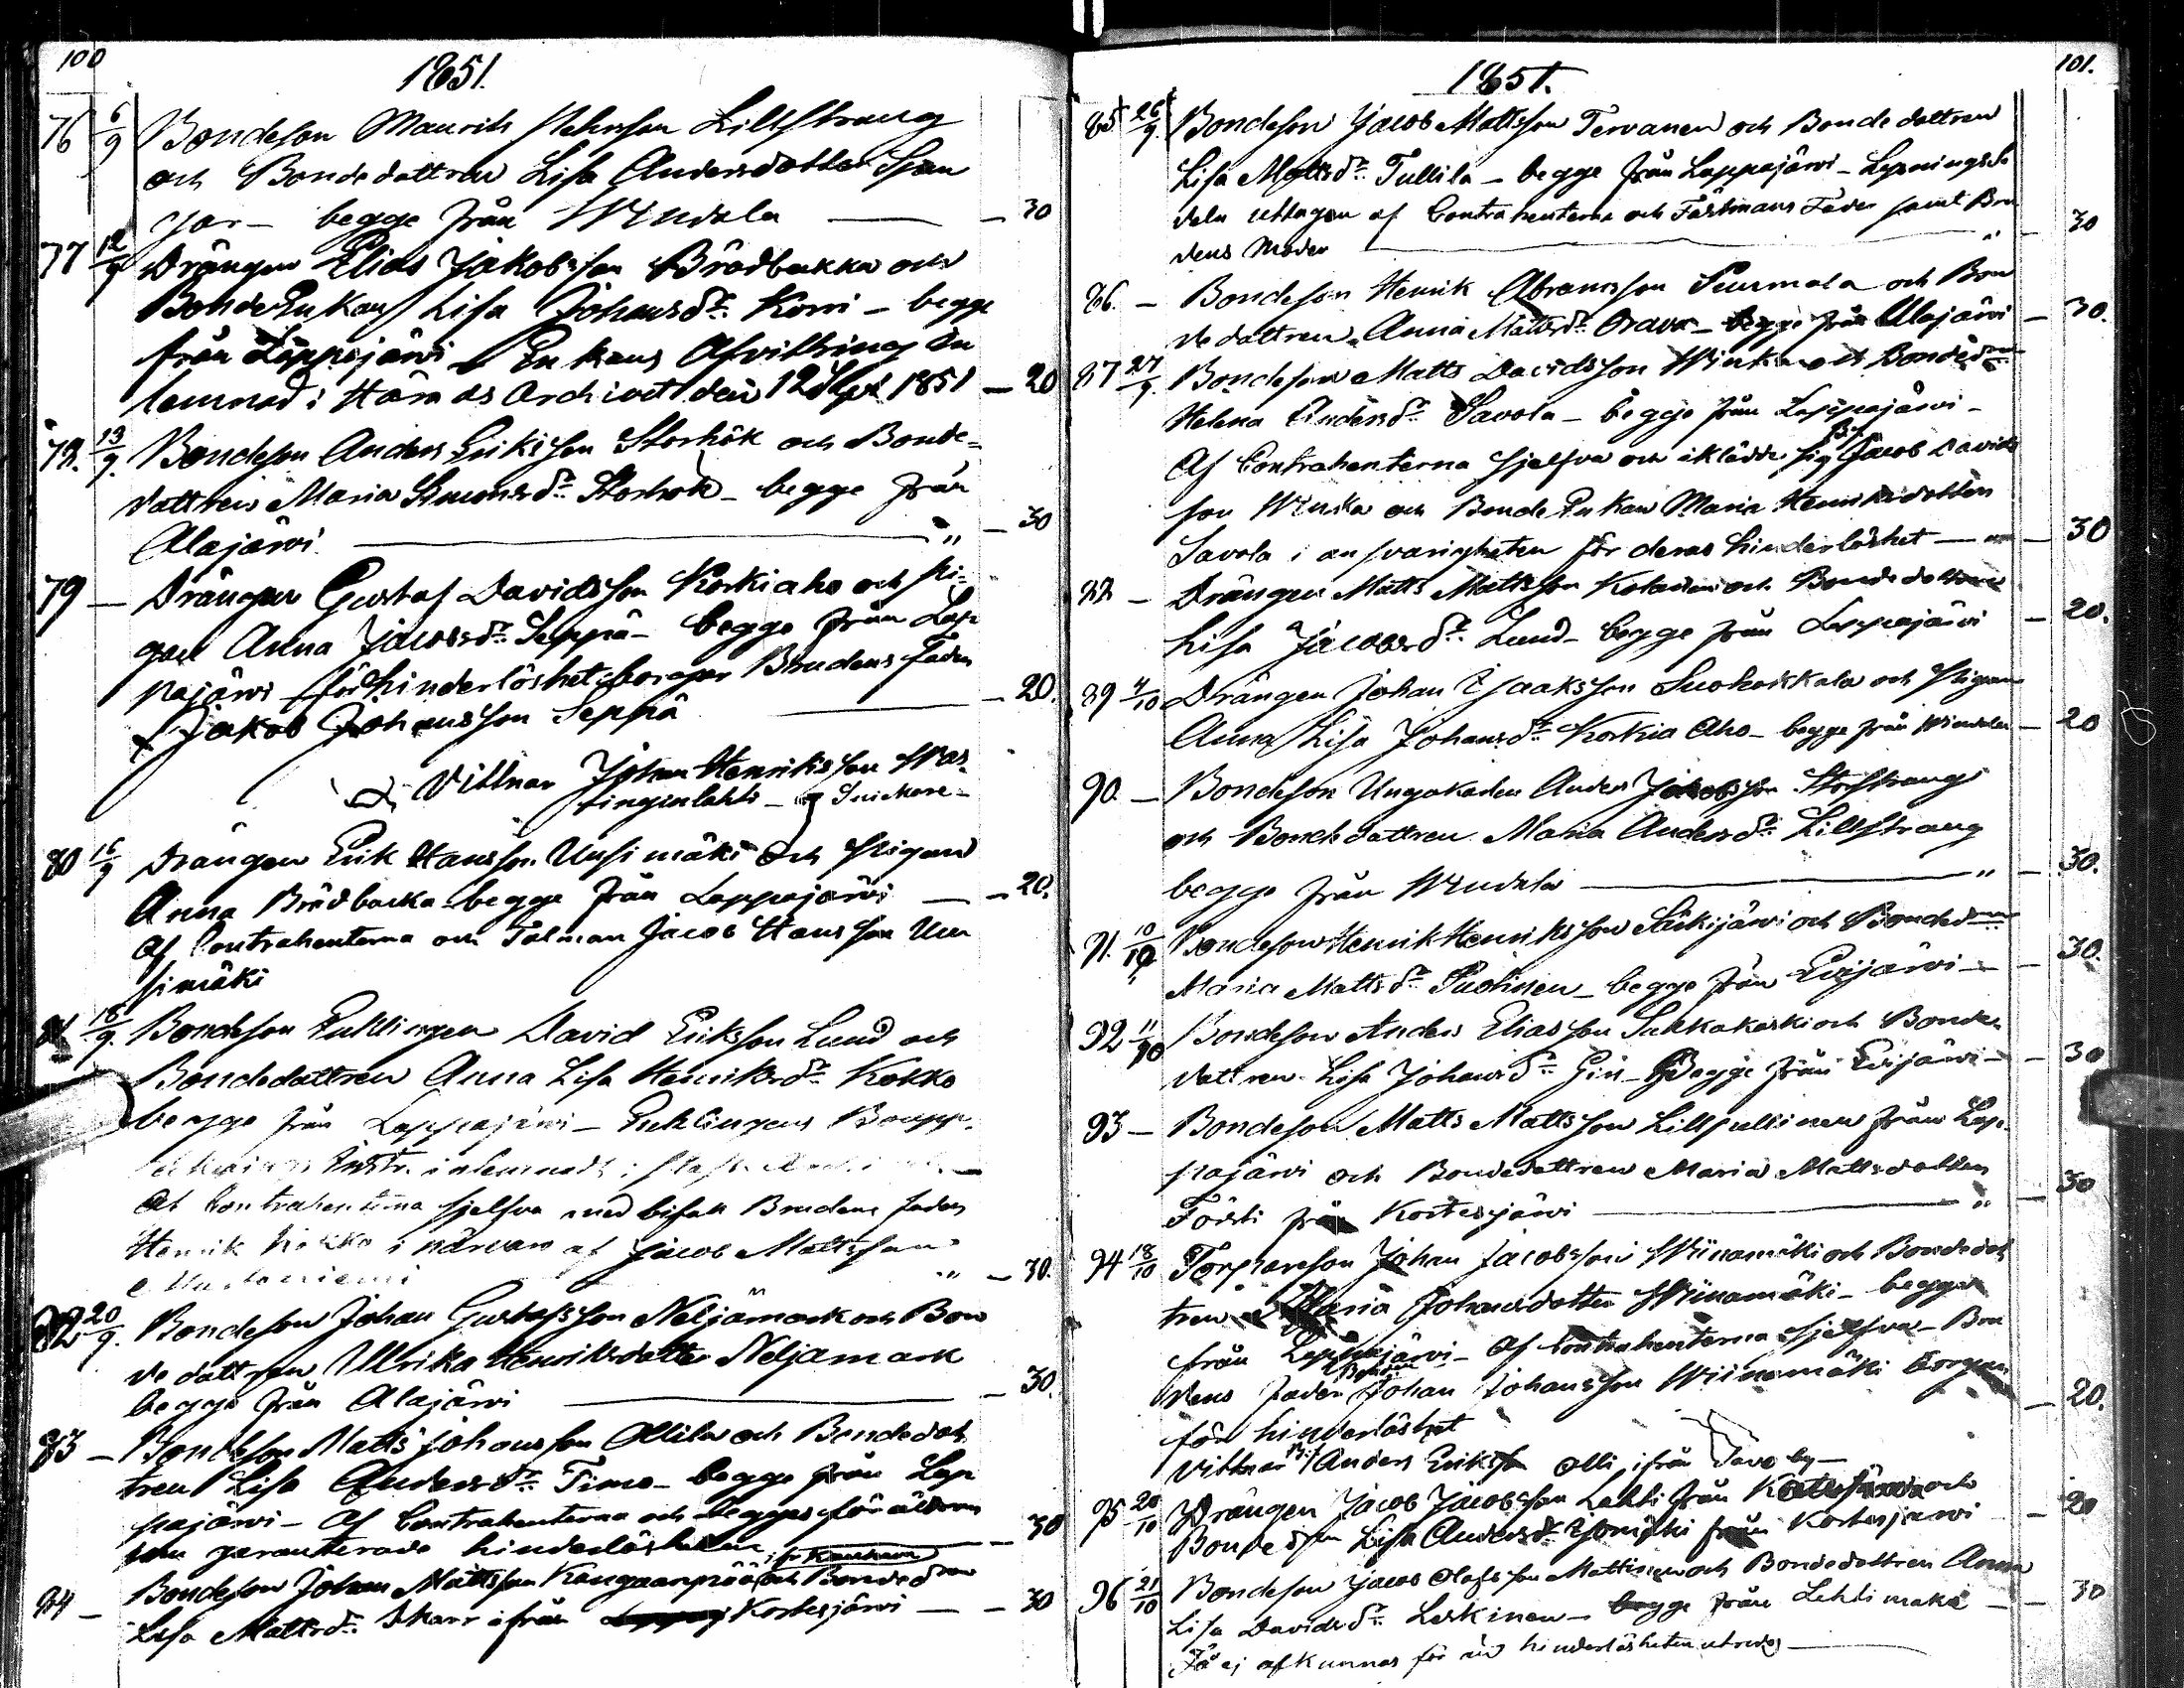 100
1851.
76 6/9 Bondeson Maurits Mehisson Lillstrang
och Bondedottren Lisa Andersdotter Span
gar - begge från Windala — 30
77 12/9 Drängen Elias Jakobsson Brädbakka och
BondeEnkan Lisa Johansdr. Korri - begge
från Lappajärvi - Enkans Afvittring in
lemnad i Härads Archivet den 12 Sept 1851 — 20
78. 13/9. Bondeson Anders Eriksson Storhök och Bonde-
dottren Maria Simonsdr. Storhök - begge från
Alajärvi — " — 30
79 — Drängen Gustaf Davidsson Korkiaho och Pi-
gan Anna Jacobsdr. Seppä - begge från Lap
pajärvi - för hinderlöshet borgar Brudens Fader
Jakob Johansson Seppä — 20.
Vittnar Johan Henriksson Was-
tinginlahti - Snickare -
80 15/9 Drängen Erik Hansson Uusimäki och Pigan
Anna Brädbacka - begge från Lappajärvi — 20.
Af Contrahenterna och Talman Jacob Hansson Uu
simäki
81 18/9. Bondeson Enklingen David Eriksson Lund och
Bondedottren Anna Lisa Henriksdr. Kokko
begge från Lappajärvi - Enklingens Boupp-
Instr. inlemnadt i
Af Contrahenterna sjelfva med bifall Brudens fader
Henrik Kokko i närvaro af Jacob Mattsson
" — 30.
82 20/9. Bondeson Johan Gustafsson Neljämark och Bon
dedottren Ullrika Henriksdotter Neljamark
begge från Alajärvi — 30.
83 — Bondeson Matts Johansson Ollila och Bondedot
tren Lisa Andersdr. Timo - begge från Lap
pajärvi - Af Contrahenterna och begges föräldrar
som garanterade hinderlösheten — 30
84 — Bondeson Johan Mattsson Kangaanpää ifr Kauhava och Bondedtren
Lisa Mattsdr. Skarr ifrån Kortesjärvi — 30
101.
1851.
85 26/9. Bondeson Jacob Mattsson Tervanen och Bondedottren
Lisa Mattsdr. Tullila - begge från Lappajärvi - Lysningsse
deln uttagen af Contrahenterna och Fästmans Fader samt Bru
dens Moder — " — 30
86. — Bondeson Henrik Abramsson Peurmala och Bon
dedottren Anna Mattsdr. Orava - begge från Alajärvi — 30.
87 27/9. Bondeson Matts Davidsson Winka och Bondedtren
Helena Andersdr. Savola - begge från Lappajärvi -
Af Contrahenterna sjelfva och iklädde sig Jacob Davids
son Winka och BondeEnkan Maria Henriksdotter
Savola i ansvarigheten för deras hinderlöshet — 30
88 — Drängen Matts Mattsson Kotanen och Bondedottren
Lisa Jacobsdr. Lund - begge från Lappajärvi — 20.
89 4/10 Drängen Johan Isaaksson Suokokkala och Pigan
Anna Lisa Johansdr. Korkia Aho - begge från Windala — 20
90. — Bondeson Ungakaden Anders Jakobsson Storstrang
och Bondedottren Maria Andersdr. Lillstrang
begge från Windala — " — 30.
91. 10/10 Bondeson Henrik Henriksson Särkijärvi och Bondedtren
Maria Mattsdr. Puolinen - begge från Evijärvi — 30.
92 11/10 Bondeson Anders Eliasson Sukkakoski och Bonde-
dottren Lisa Johansdr. Giri - Begge från Evijärvi — 30
93 — Bondeson Matts Mattsson Lillpullinen från Lap-
pajärvi och Bondedottren Maria Mattsdotter
Försti från Kortesjärvi — " — 30
94 18/10 Torparson Johan Jacobsson Wiinamäki och Bondedot
tren Maria Johansdotter Wiinamäki - begge
från Lappajärvi - Af Contrahenterna sjelfva - Bru
dens Fader Bonden Johan Johansson Wiinamäki borgar
för hinderlöshet — 20.
Vittnar Anders Eriksson Olli ifrån Savo by -
95 20/10 Drängen Jacob Jacobsson Lahti från Kortesjärvi och
Bondedtren Lisa Andersdr. Yömäki från Kortesjärvi — 20
96 21/10 Bondeson Jacob Olofsson Mattinen och Bondedottren Anna
Lisa Davidsdr. Leskinen - begge från Lehtimäki — 30
Få ej afkunnas för än hinderlösheten utredes —